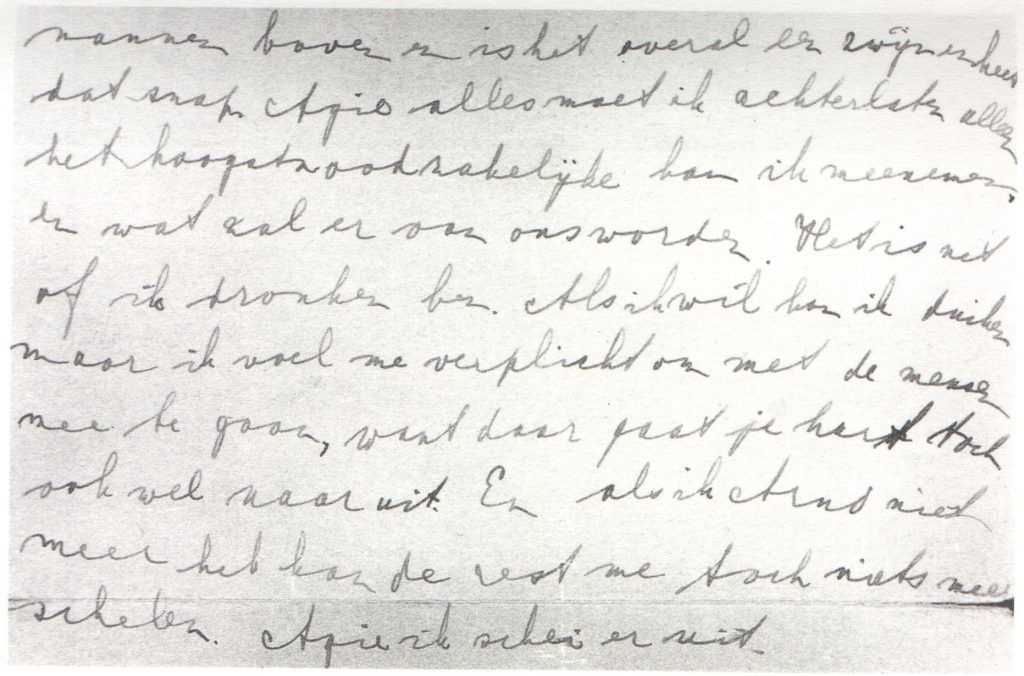 mannen boven en is het overal een zwijnenkeet
dat snap Apie alles moet ik achterlaten alleen
het hoogstnoodzakelijke kan ik meenemen,
en wat zal er van ons worden. Het is net
of ik dronken ben. Als ik wil kan ik duiken
maar ik voel me verplicht om met de mensen
mee te gaan, want daar gaat je hart toch
ook wel naar uit. En als ik Arno niet
meer heb kan de rest me toch niets meer
schelen. Apie ik schei er uit.